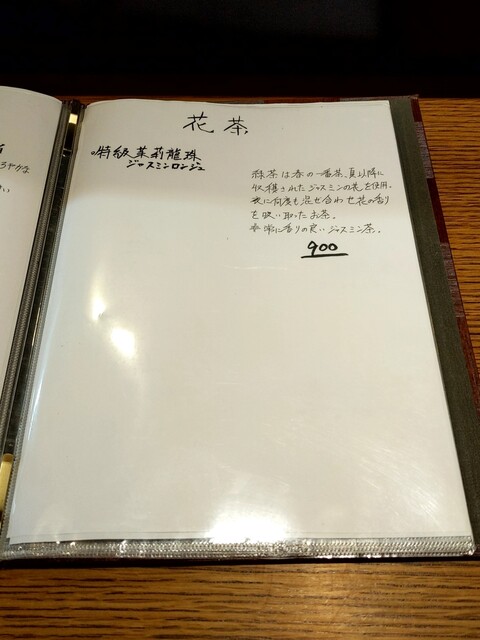 花茶
特級茉莉龍珠
ジャスミンロンジュ
緑茶は春の一番茶、夏以降に
収穫されたジャスミンの花を使用。
更に何度も混ぜ合わせ花の香り
を吸い取ったお茶。
非常に香りの良いジャスミン茶。
900
ろやかな